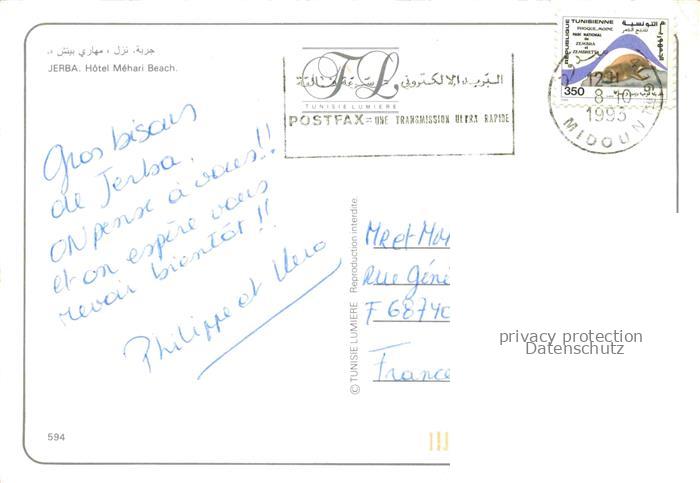 جربة. نزل ، مهاري بيتش ،.
JERBA. Hôtel Méhari Beach.
TL
TUNISIE LUMIERE
البريد الالكتروني
POSTFAX = UNE TRANSMISSION ULTRA RAPIDE
REPUBLIQUE TUNISIENNE
التونسية
PHOQUE MOINE
PARC NATIONAL
DE
ZEMBRA
ET
ZEMBRETTA
350
12H
8-10
1993
MIDOUN
Gros bisous
de Jerba.
ON pense à vous!!
et on espère vous
revoir bientôt!!
Philippe et Vero
© TUNISIE LUMIERE Reproduction interdite.
MR et
Rue Géné
F 68740
France
privacy protection
Datenschutz
594